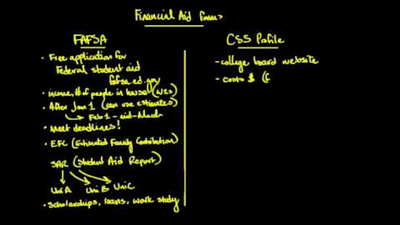 Financial Aid Forms
FAFSA
• Free application for
Federal student aid
fafsa.ed.gov
• income, # of people in household (W2s)
• After Jan 1 (can use estimates)
↳ Feb 1 - mid-March
• Meet deadlines!
• EFC (Estimated Family Contribution)
SAR (Student Aid Report)
Uni A Uni B Uni C
• Scholarships, loans, work study
CSS Profile
- college board website
- costs $ (